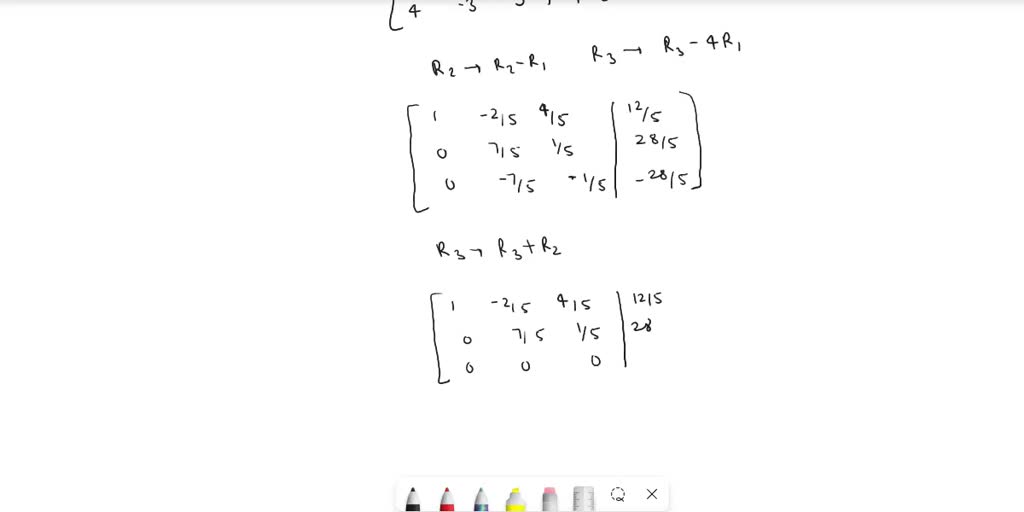 [4 -3
R2 → R2-R1 R3 → R3 - 4R1
1 -2/5 4/5 | 12/5
0 7/5 1/5 | 28/5
0 -7/5 -1/5 | -28/5
R3 → R3+R2
1 -2/5 4/5 | 12/5
0 7/5 1/5 | 28
0 0 0 |